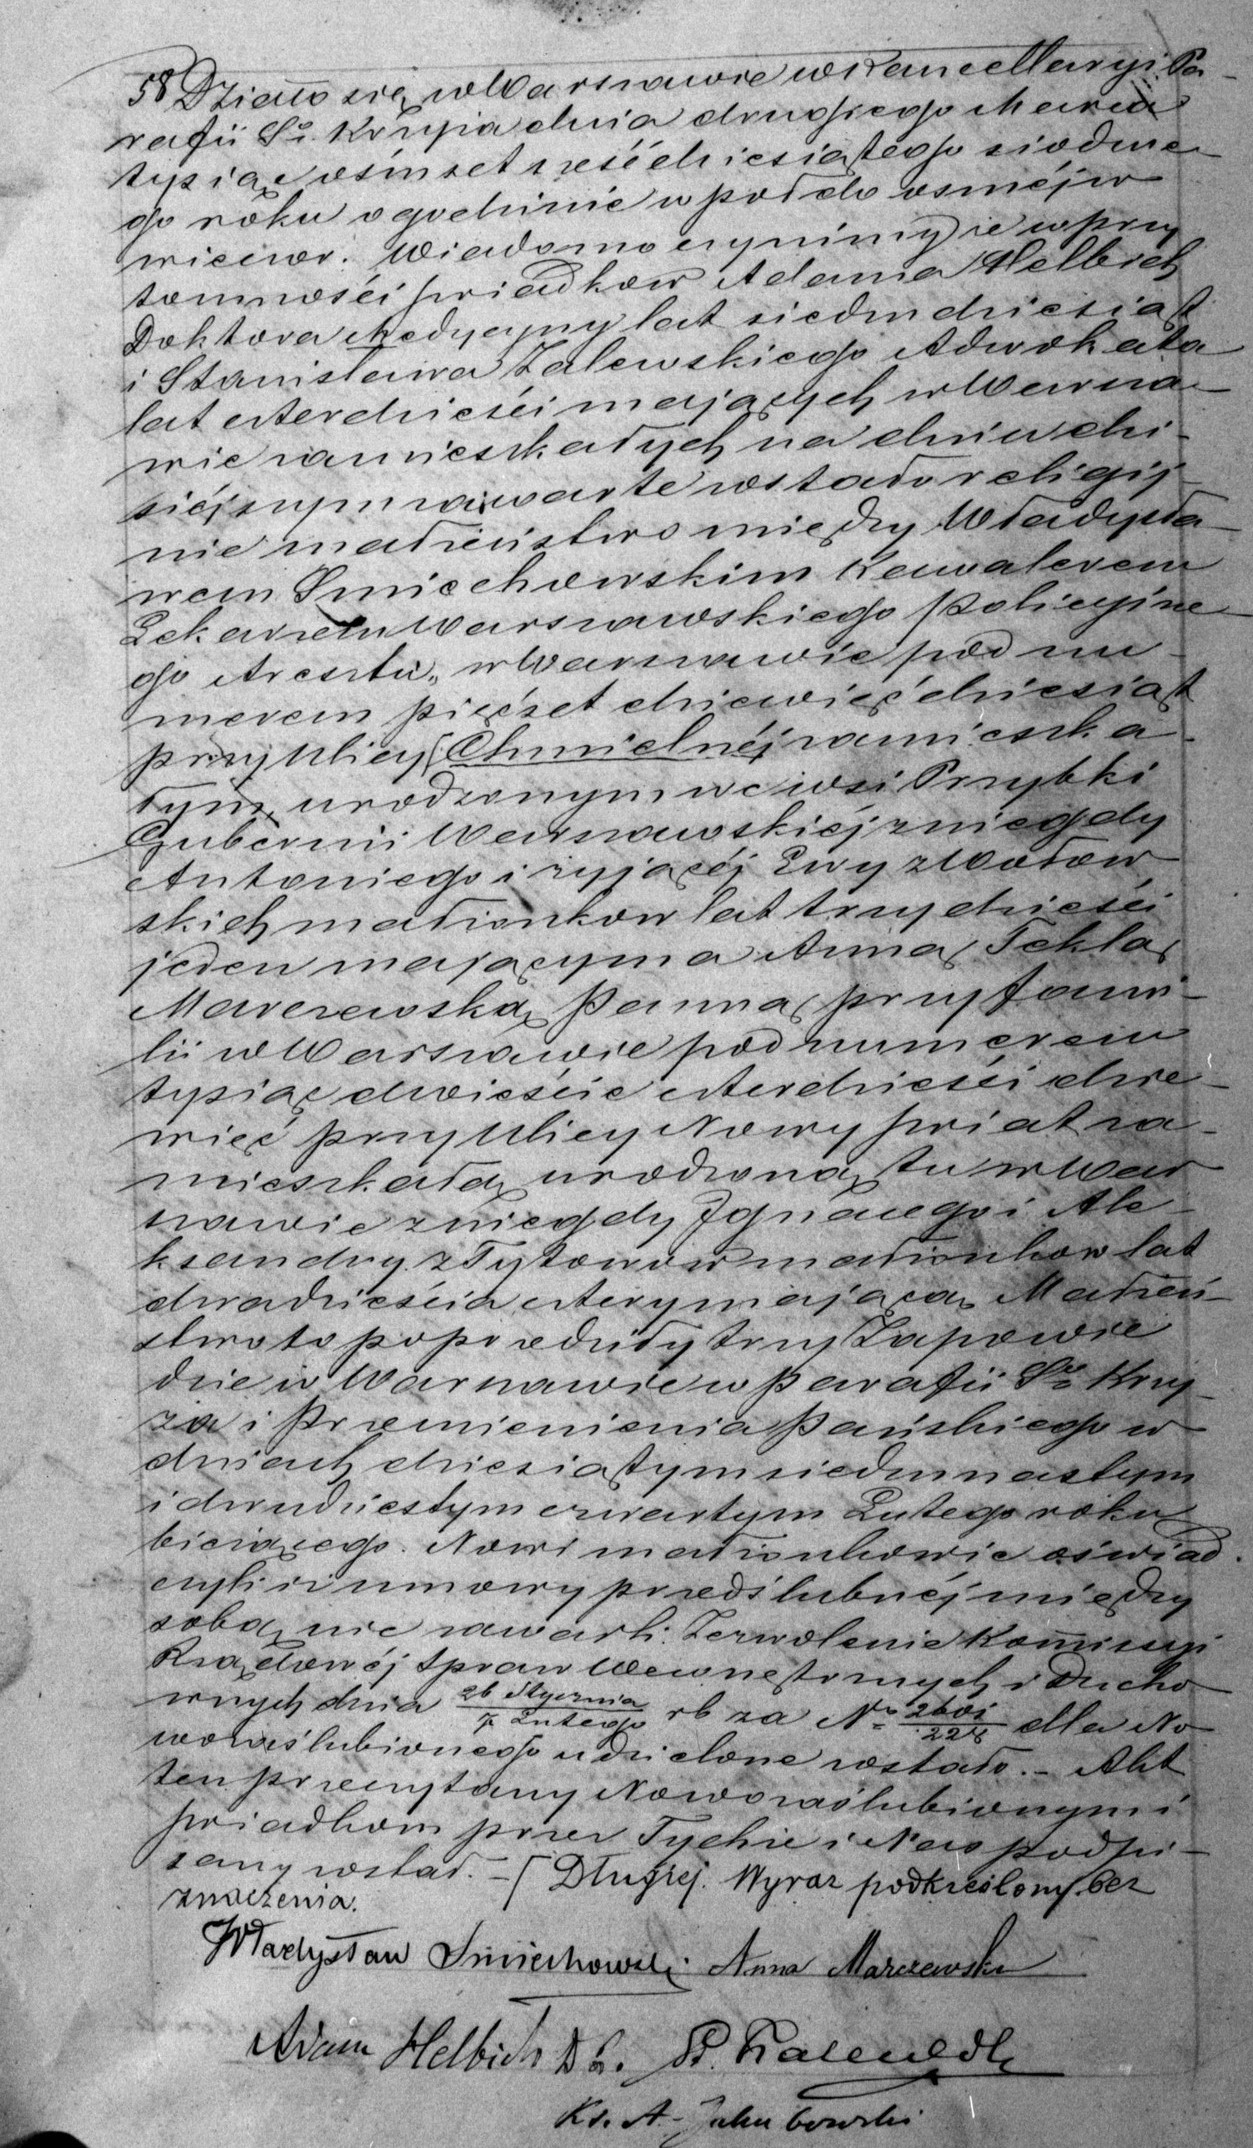 58 Działo się w Warszawie w Kancellaryi Pa-
rafii Sgo Krzyża dnia drugiego Marca
tysiąc ośmset sześćdziesiątego siódme-
go roku o godzinie w pół do osméj w
wieczor. Wiadomo czynimy że w przy
tomności świadków Adama Helbich
Doktora Medycyny lat siedmdziesiąt
i Stanisława Zalewskiego Adwokata
lat czterdzieści mających w Warsza-
wie zamieszkałych na dniu dzi-
siéjszym zawarte zostało religij-
nie małżeństwo między Władysła-
wem Smiechowskim Kawalerem
Lekarzem Warszawskiego Policyjne-
go Aresztu, w Warszawie pod nu-
merem pięćset dziewięćdziesiąt
przy Ulicy [Chmielnéj zamieszka-
łym, urodzonym we wsi Przybki
Gubernii Warszawskiéj z niegdy
Antoniego i żyjącéj Ewy z Wołow
skich małżonków lat trzydzieści
jeden mającym a Anną Teklą
Marczewską Panną przy fami-
lii w Warszawie pod numerem
tysiąc dwieście czterdzieści dzie-
więć przy Ulicy Nowy Świat za-
mieszkałą urodzoną tu w War
szawie z niegdy Ignacego i Ale-
ksandry z Tytzów małżonków lat
dwadzieścia cztery mającą Małżeń-
stwo to poprzedziły trzy Zapowie
dzie w Warszawie w Parafii Sgo Krzy-
ża i Przemienienia Pańskiego w
dniach dziesiątym siedmnastym
i dwudziestym czwartym Lutego roku
bieżącego. Nowi małżonkowie oświad-
czyli iż umowy przedślubnéj między
sobą nie zawarli. Zezwolenie Kommissyi
Rządowéj Spraw Wewnętrznych i Ducho
wnych dnia 26 Stycznia / 7 Lutego rb za No 2601 / 224 dla No
wozaślubionego udzielone zostało. - Akt
ten przeczytany Nowozaślubionym i
świadkom przez Tychże i Nas podpi-
sany został. - [Długiej. Wyraz podkreślony bez
znaczenia.
Władysław Smiechowski Anna Marczewska
Adam Helbich Dr. St. Zalewski
Ks. A. Jakubowski